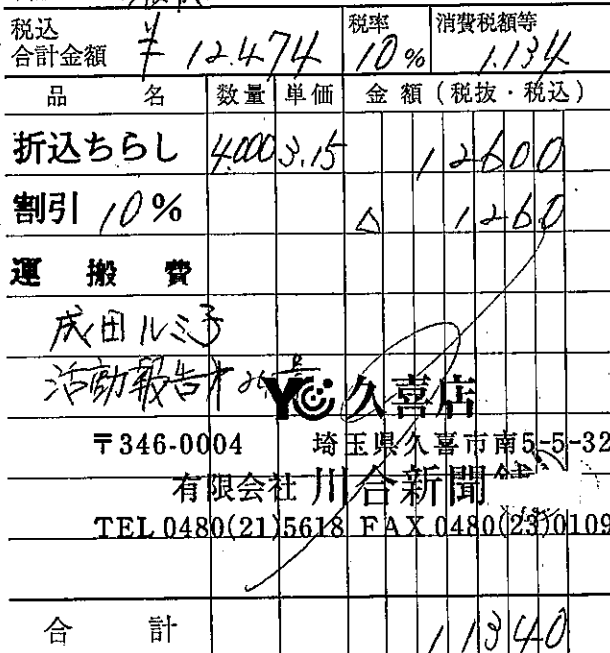 税込
合計金額 ¥12.474 税率 10% 消費税額等 1.134
品 名 数量 単価 金額(税抜・税込)
折込ちらし 4.000 3.15 12600
割引 10% △ 1260
運搬費
成田ルミ子
活動報告
YC 久喜店
〒346-0004 埼玉県久喜市南5-5-32
有限会社 川合新聞舗
TEL 0480(21)5618 FAX 0480(23)0109
合 計 11340